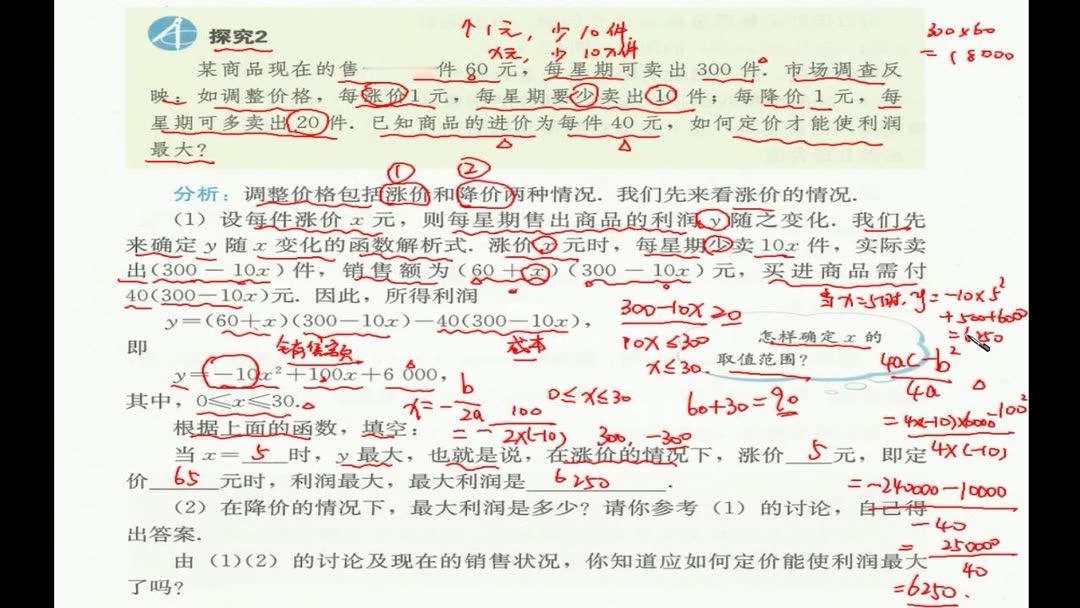 探究2
↑1元,少10件.
x元,少10x件
300×60
=18000
某商品现在的售 件 60 元,每星期可卖出 300 件.市场调查反
映:如调整价格,每涨价1元,每星期要少卖出 10 件;每降价 1 元,每
星期可多卖出20件.已知商品的进价为每件 40 元,如何定价才能使利润
最大?
① ②
分析:调整价格包括涨价和降价两种情况.我们先来看涨价的情况.
(1) 设每件涨价 x 元,则每星期售出商品的利润 y 随之变化.我们先
来确定 y 随 x 变化的函数解析式.涨价 x 元时,每星期少卖 10x 件,实际卖
出(300-10x)件,销售额为(60+x)(300-10x)元,买进商品需付
40(300-10x)元.因此,所得利润
当x=5时,y=-10×5²
+500+6000
=6250
y=(60+x)(300-10x)-40(300-10x),
300-10x≥0
即
销售额
成本
10x≤300
x≤30.
怎样确定 x 的
取值范围?
y=-10x²+100x+6 000,
4ac-b²
4a
其中,0≤x≤30.
x=-b
2a
0≤x≤30
60+30=90
=-100
2×(-10)
300, -300
=4×(-10)×6000-100²
4×(-10)
根据上面的函数,填空:
当 x=5时,y 最大,也就是说,在涨价的情况下,涨价5元,即定
价65元时,利润最大,最大利润是6250.
=-240000-10000
-40
(2) 在降价的情况下,最大利润是多少?请你参考 (1) 的讨论,自己得
出答案.
=250000
40
由 (1)(2) 的讨论及现在的销售状况,你知道应如何定价能使利润最大
了吗?
=6250.